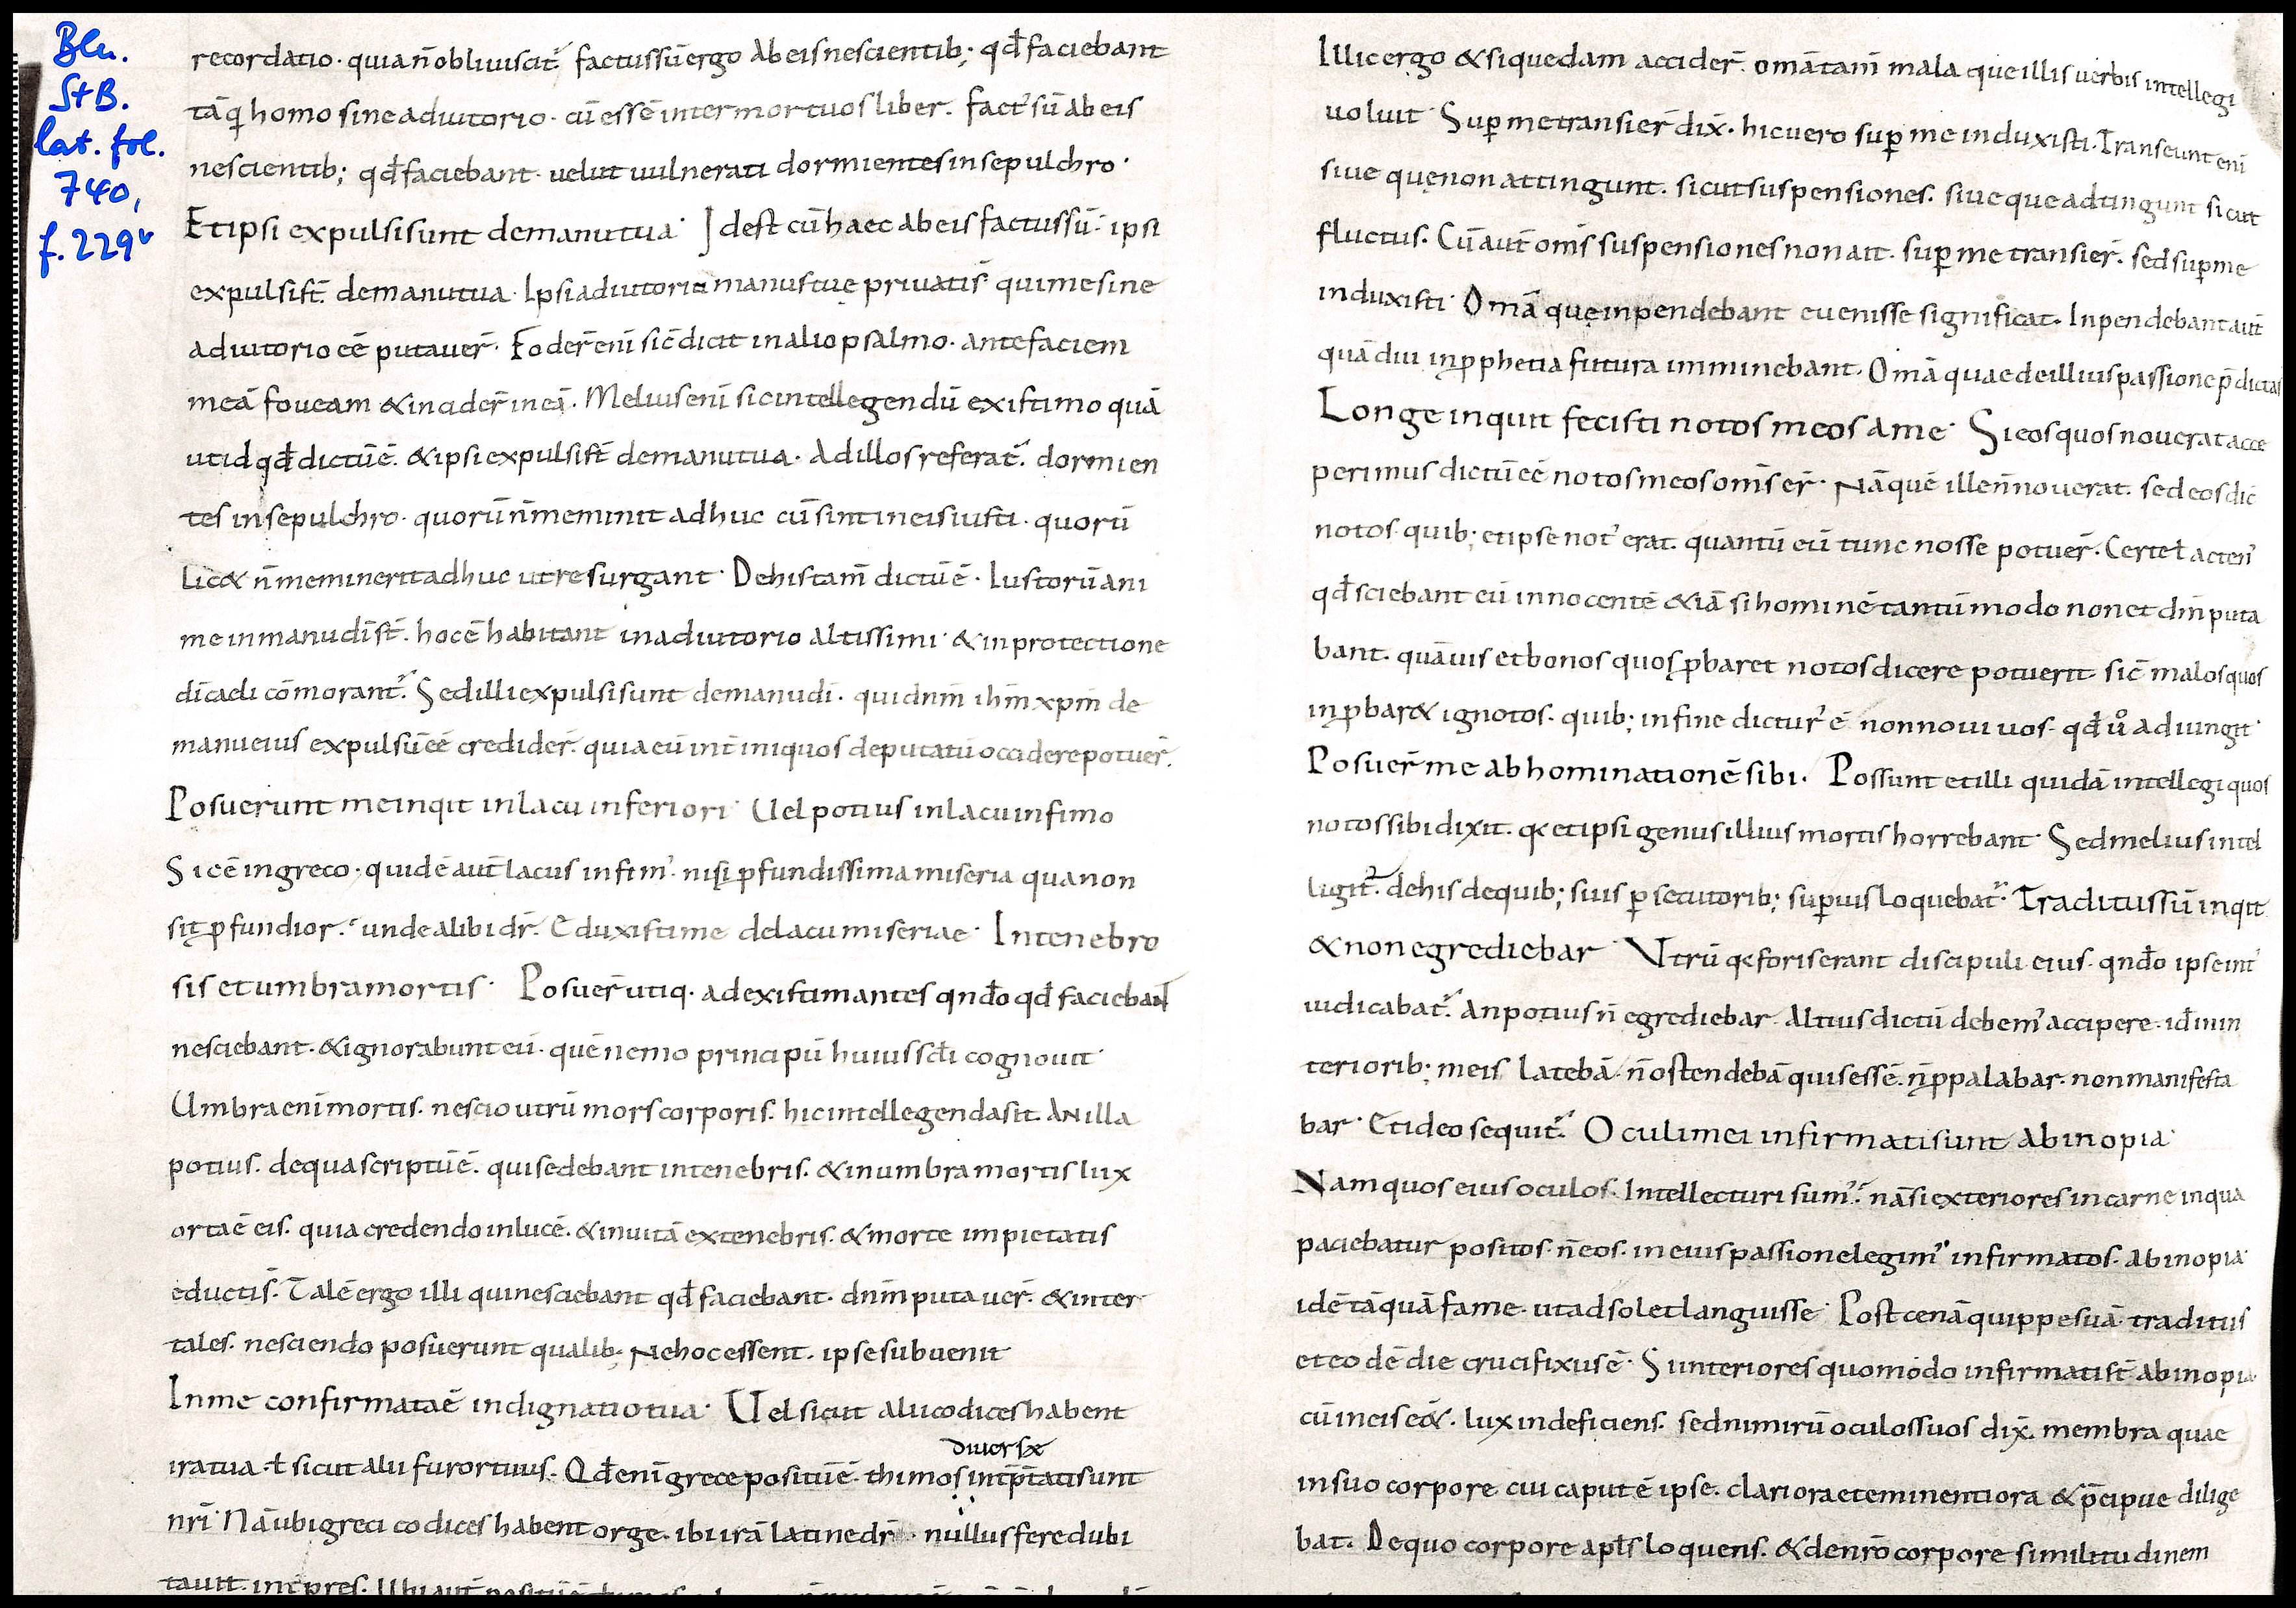 Bln.
StB.
lat. fol.
740,
f. 229v
recordatio· quia n̄ obliuiscit᷑ factus sū ergo Ab eis nescientib; qđ faciebant
tāq̄ homo sine adiutorio· cū essē inter mortuos liber. fact᾽ sū ab eis
nescientib; qđ faciebant· uelut uulnerati dormientes in sepulchro·
Et ipsi expulsi sunt de manu tua· Idest cū haec ab eis factus sū· ipsi
expulsi st̄. de manu tua· Ipsi adiutorio manus tuę priuati s̄t qui me sine
adiutorio eē putauer̄· Foder̄ enī sic̄ dicit in alio psalmo· ante faciem
meā foueam & incider̄ in eā. Melius enī sic intellegendū existimo quā
ut id qđ dictū ē. & ipsi expulsi st̄ de manu tua· Ad illos referat᷑. dormien
tes in sepulchro· quorū n̄ meminit adhuc cū sint in eis iusti· quorū
lic& n̄ meminerit adhuc ut resurgant· De his tam̄ dictū ē· Iustorū ani
me in manu dī st̄. hoc ē habitant in adiutorio altissimi· & in protectione
dī cadi cōmorant᷑. Sed illi expulsi sunt de manu dī· qui dnm̄ ihm̄ xpm̄ de
manu eius expulsū eē credider̄. quia eū int̄ iniquos deputatū occidere potuer̄.
Posuerunt me inqit in lacu inferiori· Uel potius in lacu infimo
Sic ē in greco· quid ē aut̄ lacus infim᾽ nisi ꝓfundissima miseria qua non
sit ꝓfundior. unde alibi dr̄. Eduxisti me de lacu miseriae· In tenebro
sis et umbra mortis· Posuer̄ utiq· ad existimantes qn̄do qđ facieban
nesciebant· & ignorabunt eū· quē nemo principū huius scl̄i cognouit·
Umbra enī mortis· nescio utrū mors corporis. hic intellegenda sit. AN illa
potius. de qua scriptū ē. qui sedebant in tenebris. & in umbra mortis lux
orta ē eis. quia credendo in lucē. & in uitā ex tenebris. & morte impietatis
educti s̄. Talē ergo illi qui nesciebant qđ faciebant· dnm̄ putauer̄. & inter
tales· nesciendo posuerunt qualib; Ne hoc essent. ipse subuenit
In me confirmata ē indignatio tua· Uel sicut alii codices habent
ira tua· ł sicut alii furor tuus· Qđ enī grece positū ē· thimos int̄p̄tati sunt
diuersæ
nr̄i· Nā ubi greci codices habent orge· ibi irā latine dr̄· nullus fere dubi
tauit· int̄pres.
Illic ergo & si quedam accider̄. om̄a tam̄ mala que illis uerbis intellegi
uoluit· Suꝑ me transier̄ dix̄. hic uero suꝑ me induxisti. Transeunt enī
siue que non attingunt. sicut suspensiones. siue que adtingunt sicut
fluctus. Cū aut̄ om̄s suspensiones non ait. suꝑ me transier̄. sed suꝑ me
induxisti· Om̄a quę inpendebant euenisse significat. Inpendebant aut̄
quā diu in ꝓphetia futura imminebant. Om̄a quae de illius passione p̄dicta
Longe inquit fecisti notos meos a me· Si eos quos nouerat acce
perimus dictū eē notos meos om̄s er̄. Nā quē ille n̄ nouerat. sed eos dic̄
notos quib; et ipse not᾽ erat. quantū eū tunc nosse potuer̄. Certe ł acten᾽
qđ sciebant eū innocentē &iā si hominē tantū modo non et dm̄ puta
bant. quāuis et bonos quos ꝓbaret notos dicere potuerit sic̄ malos quos
inꝓbar& ignotos· quib; in fine dictur᾽ ē non noui uos· qđ ů adiungit
Posuer̄ me abhominationē sibi. Possunt et illi quidā intellegi quos
notos sibi dixit. qa et ipsi genus illius mortis horrebant· Sed melius intel
ligit᷑. de his de quib; suis ꝑsecutorib; superius loquebat᷑. Traditus sū inqit
& non egrediebar· Vtrū qa foris erant discipuli eius· qn̄do ipse int᾽
iudicabat᷑. An potius n̄ egrediebar Altius dictū debem᾽ accipere· id ē in in
teriorib; meis Latebā· n̄ ostendebā quis essē. n̄ ꝓpalabar· non manifesta
bar· Et ideo sequit᷑. Oculi mei infirmati sunt Ab inopia·
Nam quos eius oculos· Intellecturi sum᾽. nā si exteriores in carne in qua
paciebatur positos· n̄ eos. in eius passione legim᾽ infirmatos· Ab inopia
id ē tāquā fame· ut adsolet languisse· Post cenā quippe suā· traditus
et eo dē die crucifixus ē· Si interiores quomodo infirmati st̄ ab inopia
cū in eis eēt. lux indeficiens. sed nimirū oculos suos dix̄. membra quae
in suo corpore cui caput ē ipse. clariora et eminentiora & p̄cipue dilige
bat. De quo corpore apl̄s loquens. & de nr̄o corpore similitudinem